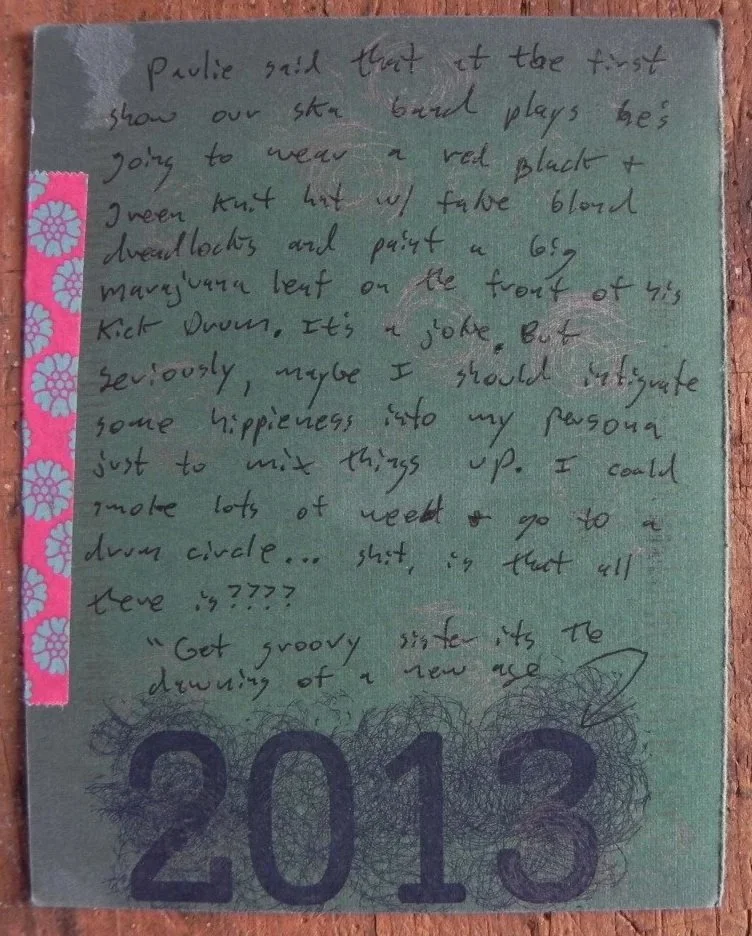 Paulie said that at the first
show our ska band plays he's
going to wear a red Black +
Green knit hat w/ fake blond
dreadlocks and paint a big
marajuana leaf on the front of his
Kick Drum. It's a joke. But
seriously, maybe I should intigrate
some hippieness into my persona
just to mix things up. I could
smoke lots of weed + go to a
drum circle... shit, is that all
there is????
"Get groovy sister its the
dawning of a new age
2013